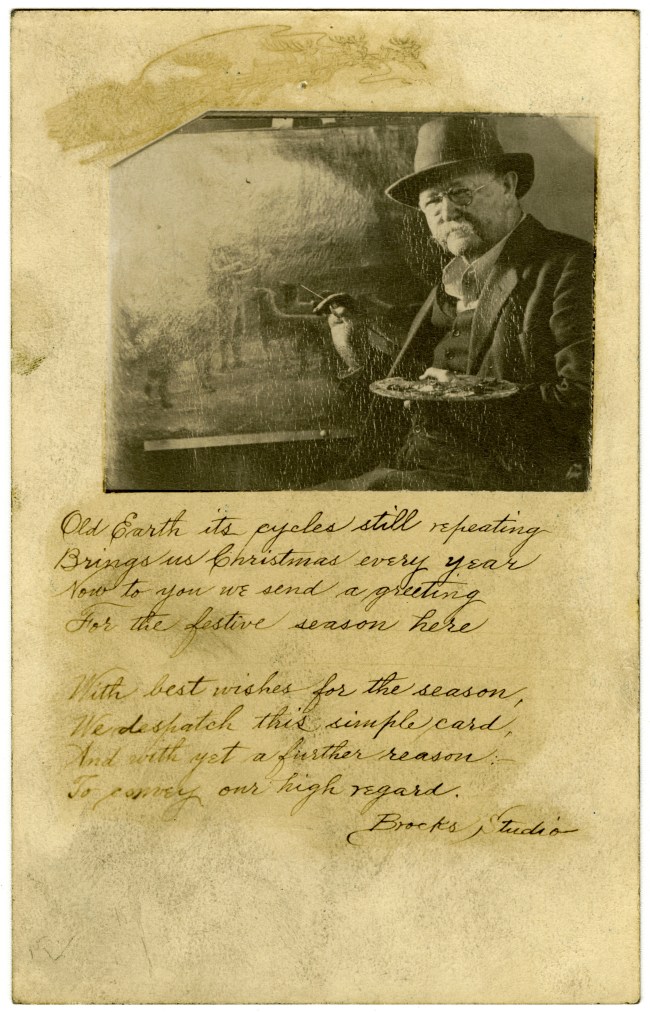 Old Earth its cycles still repeating
Brings us Christmas every year
Now to you we send a greeting
For the festive season here
With best wishes for the season,
We despatch this simple card,
And with yet a further reason:-
To convey our high regard.
Brocks Studio